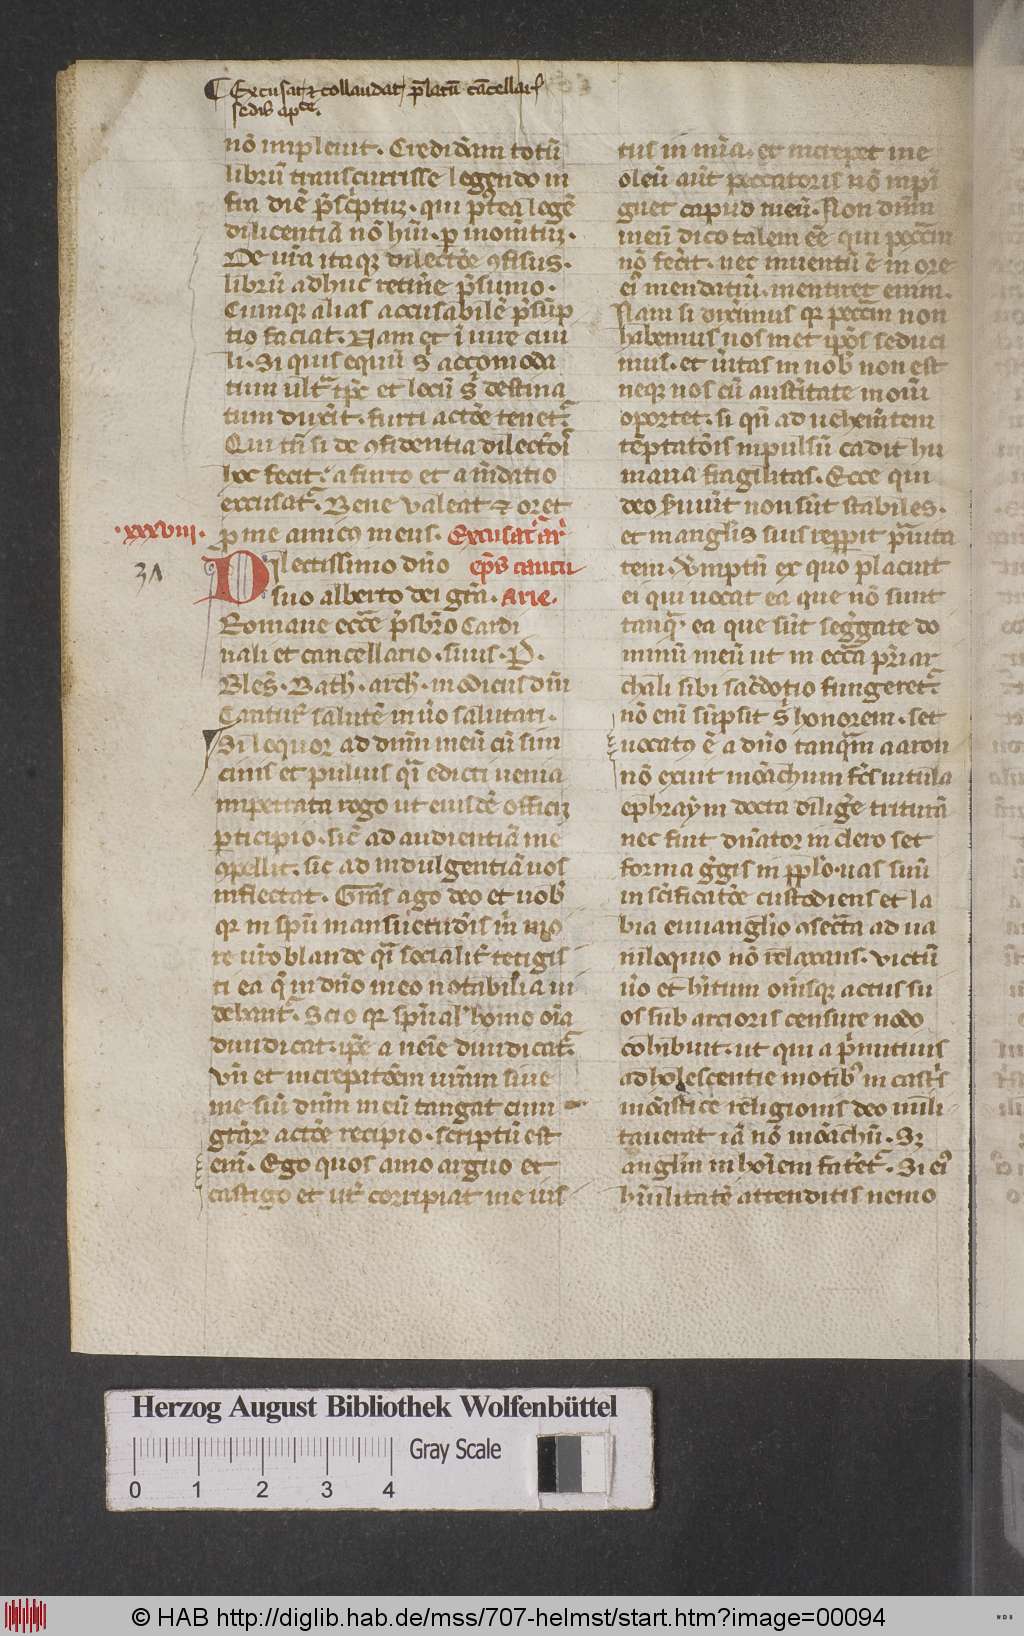 ¶ Excusat ⁊ collaudat p̄latū cācellar̄
sedis ap̄ce.
nō impleuit. Credidām totū
librū transcurrisse legendo in
fra diē p̄sc̄ptū. qui p̄tea legē
di licentiā nō hūi.
De ur̄a itaqꝫ dilectōe ꝯfisus.
librū adhuc retin̄e p̄sumo.
Cumqꝫ alias accusabilē p̄sūp
tio faciat. Nam et ī iure ciui
li. Si quis equū s̄ accomoda
tum ult̄ tp̄c et locū s̄ destina
tum dux̄it. furti actōe tenet᷑.
Qui tn̄ si de ꝯfidentia dilectōī
hoc fecit. a furto et a m̄datio
excusat᷑. Bene valeat ⁊ oret
.xxxviii. p̄ me amicꝰ meus. Excusat᷑ ar̄
31 Dilectissimo dn̄o ep̄s cantu
suo alberto dei gr̄a. arie.
Romane ecc̄e p̄sbr̄o Cardi
nali et cancellario. suus. P.
Bles̄. Bath̄. arch̄. modicus dn̄i
Cantur̄ salutē in ūo salutari.
Si loquor ad dn̄m meū cū sim
cinis et puluis qm̄ edicti uenia
impetrata rogo ut eiusdē officii
p̄ticipio. sic̄ ad audientiā me
ꝯpellit. sic ad indulgentiā uos
inflectat. Grās ago deo et uob̄
qꝫ in spū mansuetudīs
re ur̄o blande qm̄ socialit̄ tetigis
ti ea q̄ in dn̄o meo notabilia ui
debant᷑. Scio qꝫ sp̄ual᷑ homo oīa
diiudicat. ip̄e a nēie diiudicat᷑.
Vn̄ et increpatōem ur̄am siue
me siū dn̄m meū tangat cum
gr̄aꝝ actōe recipio. scriptū est
em̄. Ego quos amo arguo et
castigo et ut̄ corripiat me ius
tus in mīa. et increpet me
oleū aūt peccatoris nō inpī
guet capud meū. Non dn̄m
meū dico talem eē qui pecc̄m
nō fecit. nec inuentū ē in ore
eī mendatiū. mentiret enim.
Nam si dix̄imus qꝫ pecc̄m non
habemus nos met ip̄os seduci
mus. et ūitas in nob̄ non est
neqꝫ nos cū aust̄itate moūi
oportet. si qn̄ ad uehem̄tem
tēptatōis inpulsū cadit hu
mana fragilitas. Ecce qui
deo s̄uiūt non sūt stabiles.
et in angl̄is suis repp̄it p̄uita
tem. Ver̄mptn̄ ex quo placuit
ei qui uocat ea que nō sunt
tanqꝫ ea que sūt seḡgate do
minū meū ut in ecc̄a pr̄iar
chali sibi sac̄dotio fungeret᷑.
nō eni sūpsit s̄ honorem. set
uocatꝰ ē a dn̄o tanqm̄ aaron
nō exiuit mōachum fc̄s uitula
ephraym docta dilig̅e triturā
nec fuit dn̄ator in clero set
forma ḡgis in pp̄lo. uas suū
in sc̄ificatōe custodiens et la
bia euuanglio ꝯsec̄ta ad ua
niloquio nō relaxans. victū
ūo et h̄itum om̄isqꝫ actus su
os sub arcioris censure nodo
cohibuit. ut qui a p̄mitiuis
adholescentie motibꝰ in cast̄s
mōastice religionis deo mili
tauerat iā nō mōachū. Sꝫ
anglm̄ in hoīem fat̄et᷑. Si eī
hūilitatē attenditis nemo
Herzog August Bibliothek Wolfenbüttel
Gray Scale
0 1 2 3 4
© HAB http://diglib.hab.de/mss/707-helmst/start.htm?image=00094